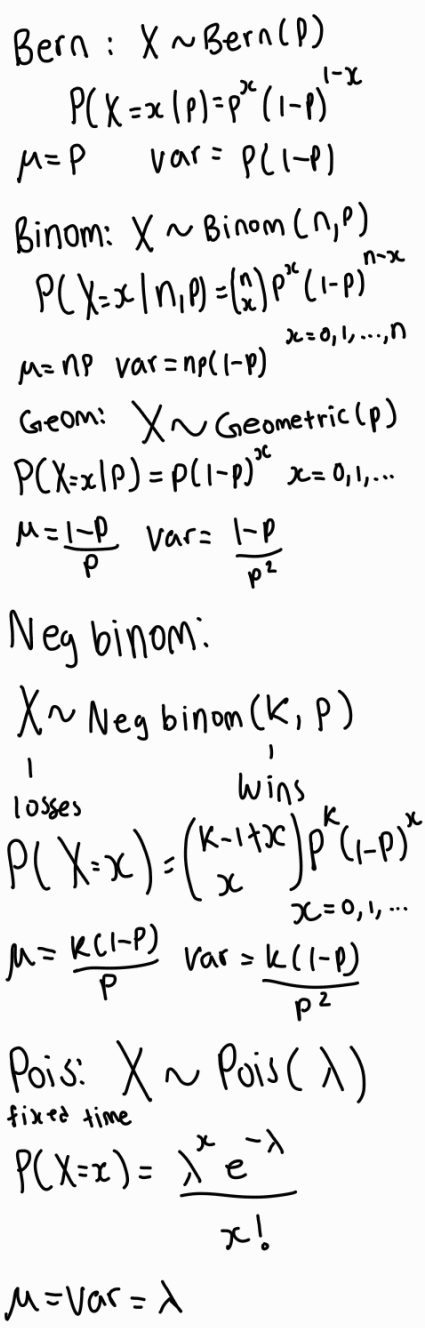 Bern : X ~ Bern(P)
P(X=x|p)=p^x (1-p)^{1-x}
μ=P var = p(1-p)
Binom: X ~ Binom(n,p)
P(X=x|n,p)=\binom{n}{x}p^x(1-p)^{n-x}
x=0,1,...,n
μ=np var=np(1-p)
Geom: X~Geometric(p)
P(X=x|P)=p(1-p)^x x=0,1,...
μ=\frac{1-p}{p} var=\frac{1-p}{p^2}
Neg binom:
X~ Neg binom(K, p)
losses wins
P(X=x)=\binom{K-1+x}{x}p^K(1-p)^x
x=0,1,...
μ=\frac{K(1-p)}{p} var=\frac{k(1-p)}{p^2}
Pois: X ~ Pois(λ)
fixed time
P(X=x)=\frac{λ^x e^{-λ}}{x!}
μ=var=λ